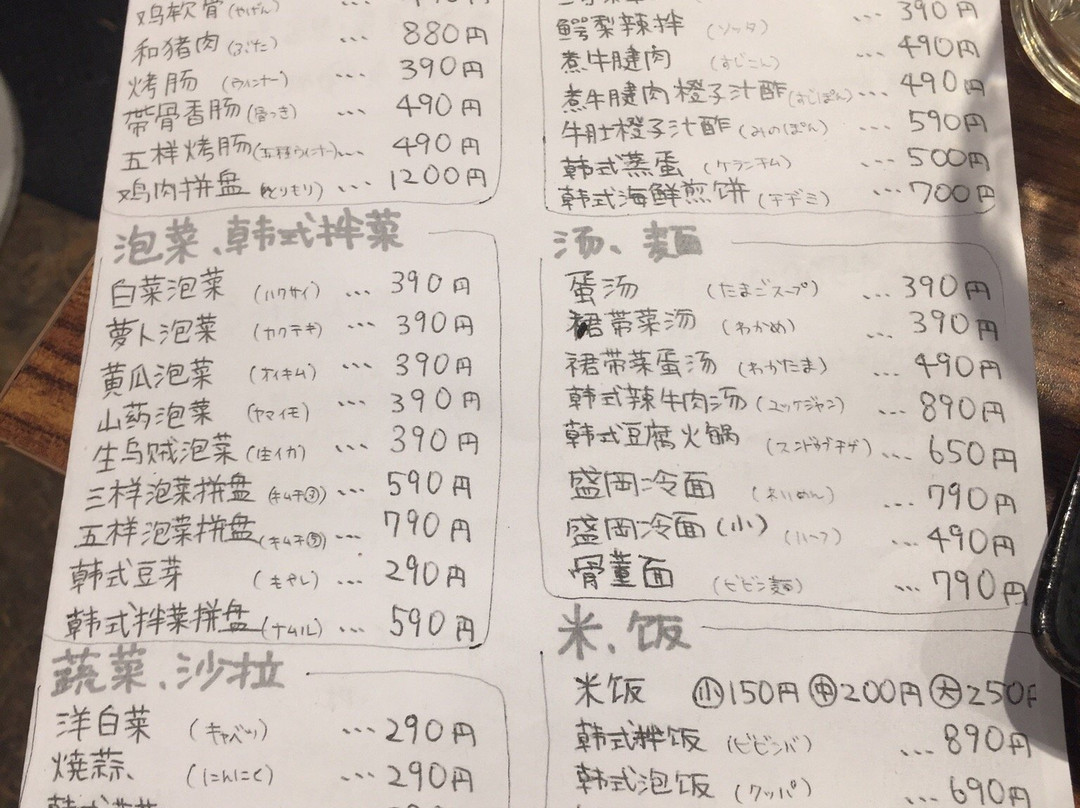 鸡软骨 (やげん) ...
和猪肉 (ぶた) ... 880円
烤肠 (ウィンナー) ... 390円
带骨香肠 (骨っき) ... 490円
五样烤肠 (五種ウィンナー) ... 490円
鸡肉拼盘 (とりもり) ... 1200円
泡菜、韩式拌菜
白菜泡菜 (ハクサイ) ... 390円
萝卜泡菜 (カクテキ) ... 390円
黄瓜泡菜 (オイキム) ... 390円
山药泡菜 (ヤマイモ) ... 390円
生乌贼泡菜 (生イカ) ... 390円
三样泡菜拼盘 (キムチ③) ... 590円
五样泡菜拼盘 (キムチ⑤) ... 790円
韩式豆芽 (もやし) ... 290円
韩式拌菜拼盘 (ナムル) ... 590円
蔬菜、沙拉
洋白菜 (キャベツ) ... 290円
焼蒜、 (にんにく) ... 290円
... 390円
鳄梨辣拌 (ソッタ) ... 490円
煮牛腱肉 (すじこん) ... 490円
煮牛腱肉橙子汁酢 (すじぽん) ... 590円
牛肚橙子汁酢 (みのぽん) ... 500円
韩式蒸蛋 (ケランチム)
韩式海鲜煎饼 (チヂミ) ... 700円
汤、麺
蛋汤 (たまごスープ) ... 390円
裙带菜汤 (わかめ) ... 390円
裙带菜蛋汤 (わかたま) ... 490円
韩式辣牛肉汤 (ユッケジャン) ... 890円
韩式豆腐火锅 (スンドゥブチゲ) ... 650円
盛岡冷面 (れいめん) ... 790円
盛岡冷面(小) (ハーフ) ... 490円
骨董面 (ビビン麺) ... 790円
米、饭
米饭 ㊥小150円 ㊥200円 大250
韩式拌饭 (ビビンバ) ... 890円
韩式泡饭 (クッパ) ... 690円